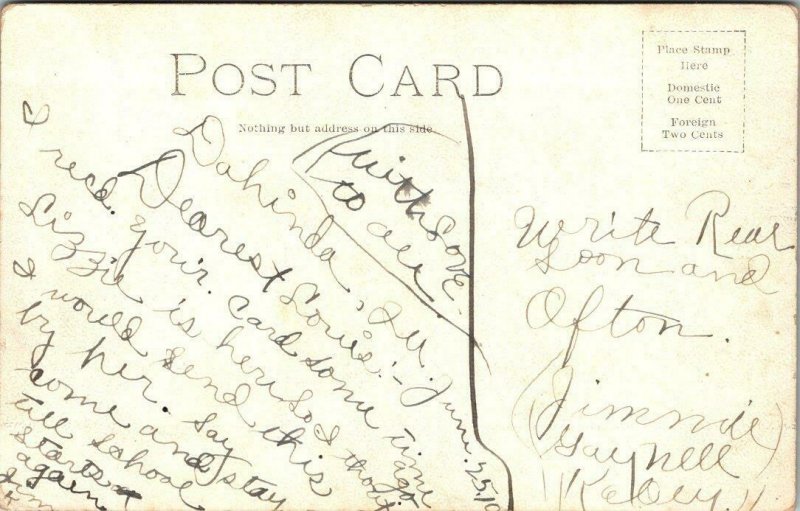 POST CARD
Nothing but address on this side
Place Stamp
Here
Domestic
One Cent
Foreign
Two Cents
Dahinda, Ill. June. 25, 10
Dearest Louise:-
I recd. your. card some time ago
Lizzie is here so I thot
I would send this
by her. Say
come and stay
till school
starts
again.
Jim
With Love
to all.
Write Real
Soon and
Ofton.
(Jimmie)
Gaynell
Kelley.